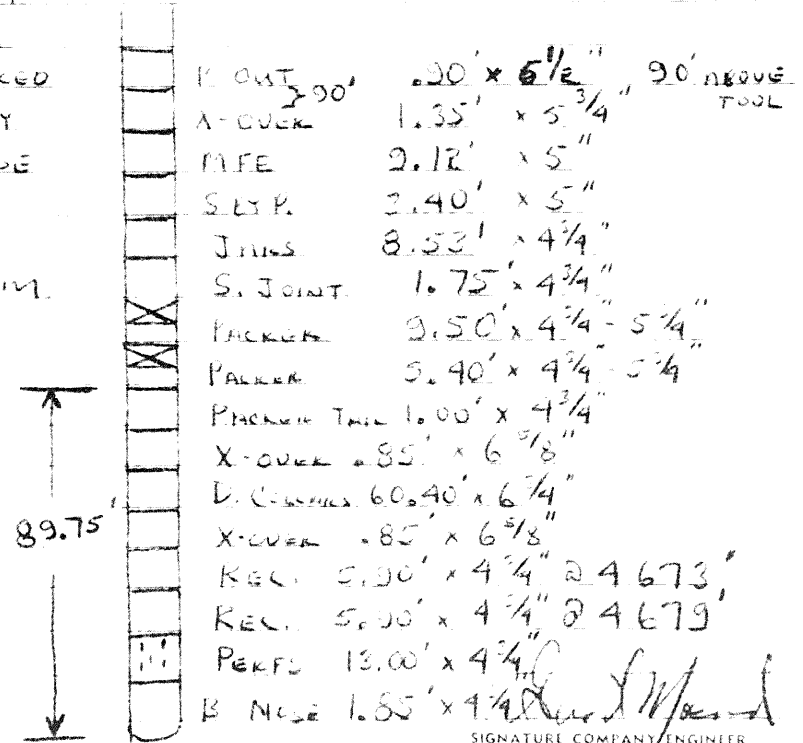 P. OUT .90' x 5 1/2" 90' ABOVE
}90'
TOOL
X-OVER 1.35' x 5 3/4"
MFE 9.12' x 5"
x 5"
JARS 8.53' x 4 3/4"
S. JOINT 1.75' x 4 3/4"
PACKER x 4 3/4" - 5 3/4"
PACKER 5.40' x 4 3/4" - 5 3/4"
PACKER TAIL 1.00' x 4 3/4"
X-OVER .85' x 6 5/8"
D. COLLARS 60.40' x
89.75'
X-OVER .85' x 6 5/8"
REC. 5.90' x 4 3/4" @ 4673'
REC. 5.90' x 4 3/4" @ 4679'
PERFS 13.00' x 4 3/4"
B NOSE 1.85' x 4 3/4"
SIGNATURE COMPANY ENGINEER